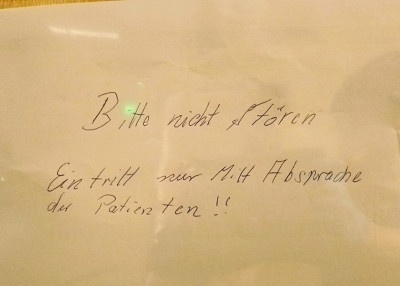 Bitte nicht Stören
Eintritt nur M.H Absprache
der Patienten !!